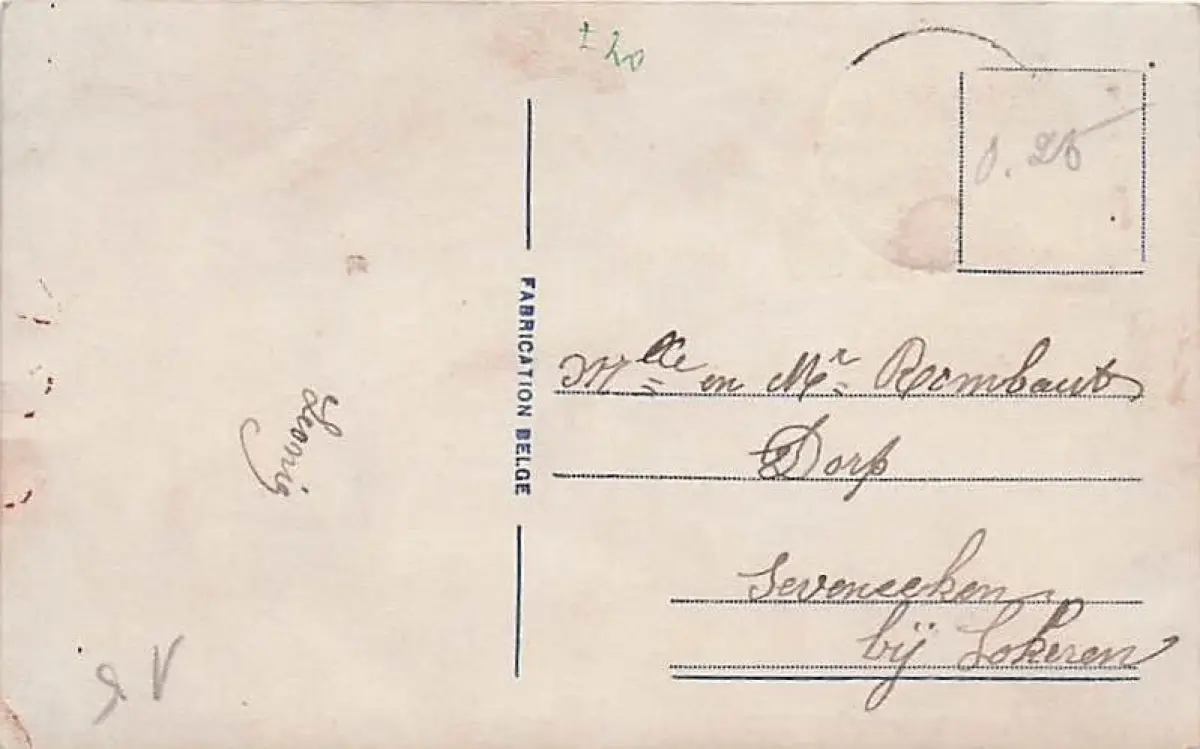 ± 20
0.25
FABRICATION BELGE
Mlle en Mr Rombaut
Dorp
Seveneeken
bij Lokeren
Leonie